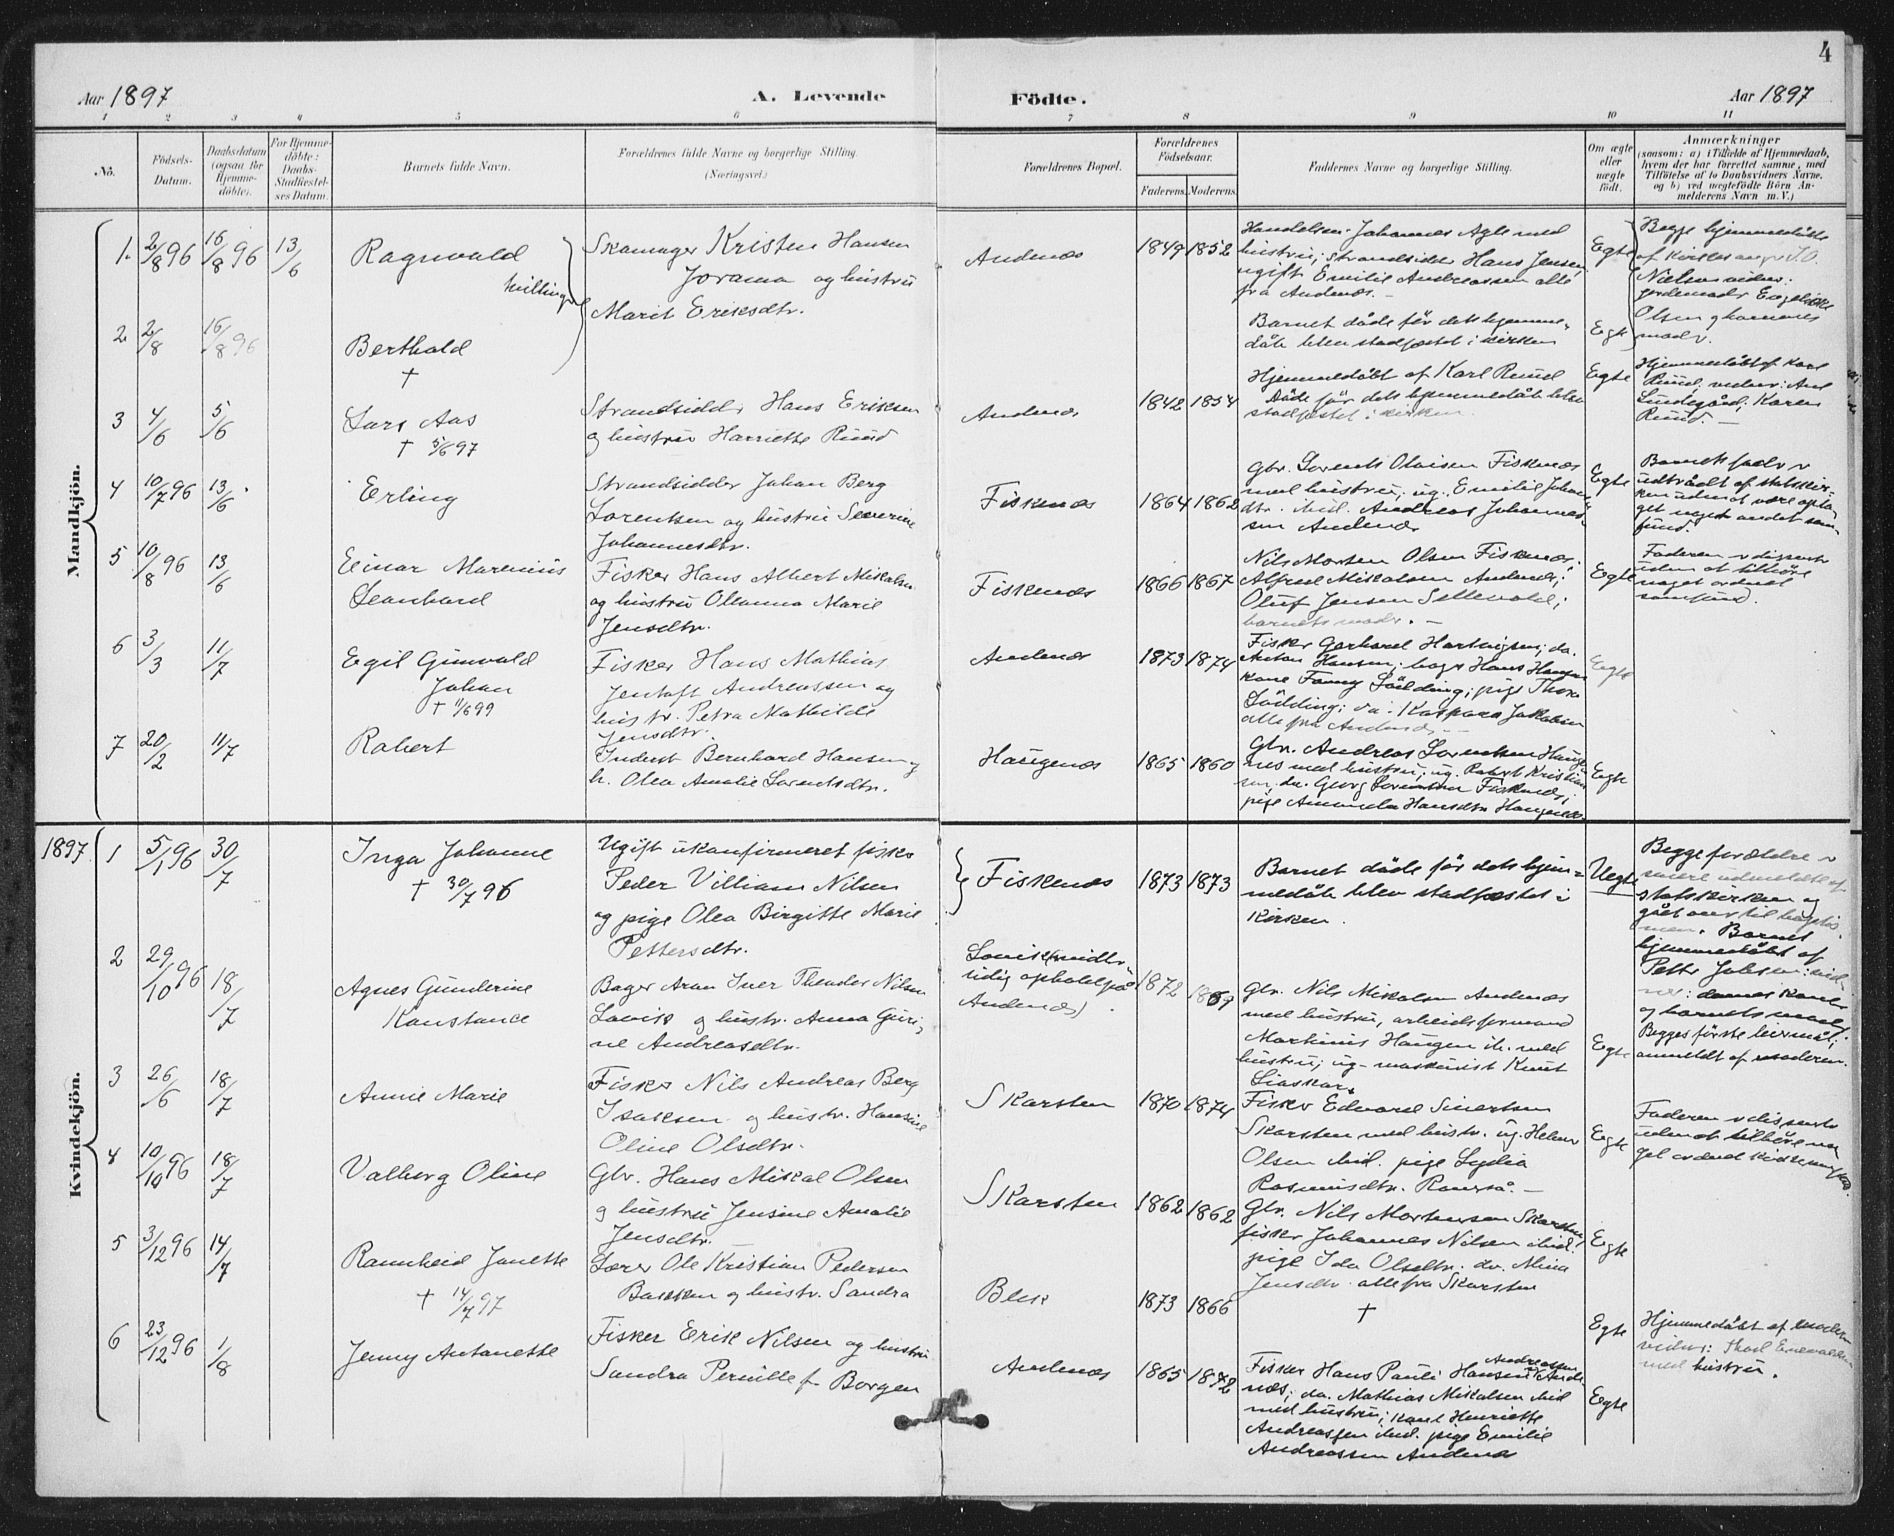 4
Aar 1897
A. Levende
Födte.
Aar 1897
1 2 3 4 5 6 7 8 9 10 11
No.
Födsels-
Datum.
Daabsdatum
(ogsaa for
Hjemme-
döbte).
For Hjemme-
döbte:
Daabs-
Stadfæstel-
ses Datum.
Barnets fulde Navn.
Forældrenes fulde Navne og borgerlige Stilling.
(Næringsvei.)
Forældrenes Bopæl.
Forældrenes
Födselsaar.
Faderens. Moderens.
Faddernes Navne og borgerlige Stilling.
Om ægte
eller
uægte
födt.
Anmærkninger
(saasom: a) i Tilfælde af Hjemmedaab,
hvem der har forrettet samme, med
Tilföielse af to Daabsvidners Navne,
og b) ved uægtefödte Börn An-
melderens Navn m. V.)
Mandkjön.
1. 2/8 96 16/8 96 13/6
Ragnvald
tvillinger
Skomager Kristen Hansen
Jorama og hustru
Marit Eriksdtr.
Andenæs
1849 1852
Handelsm. Johannes Agte med
hustru; strandsidder Hans Jensen
ugift Emilie Andreassen alle
fra Andenæs. -
Egte
Begge hjemmedöbte
af
Nielsen vidner:
Olsen og barnenes
moder.
2 2/8 16/8 96
Berthold
†
Barnet döde för dets hjemme-
dåb blev stadfæstet i kirken
Egte
3 4/6 5/6
Lars Aas
† 5/6 97
Strandsidder Hans Eriksen
og hustru Harriette Ruud
Andenæs
1842 1854
Hjemmedöbt af Karl Ruud
Döde för dets hjemmedåb blev
stadfæstet i kirken.
Egte
Hjemmedöbt af Karl
Ruud; vidner: And
Lindegård; Karen
Ruud. -
4 10/7 96 13/6
Erling
Strandsidder Johan Berg
Lorentsen og hustru Severine
Johannesdtr.
Fiskenæs
1864 1862
Gbr. Lorents Olaisen Fiskenæs
med hustru; ug. Emilie Johans
dtr. ibid. Andreas Johannes-
sen Andenæs
Egte
Barnets fader er
udtrådt af statskir-
ken uden at være opta-
get noget andet sam-
fund.
5 10/8 96 13/6
Einar Marenius
Leonhard
Fisker Hans Albert Mikalsen
og hustru Oleanna Marie
Jensdtr.
Fiskenæs
1866 1867
Nils Morten Olsen Fiskenæs;
Alfred Mikalsen Andenæs;
Oluf Jensen Sellevold;
barnets moder. -
Egte
Faderen er dissenter
uden at tilhöre
noget ordnet
samfund.
6 3/3 11/7
Egil Gunvald
Johan
† 11/6 99
Fisker Hans Mathias
Jentoft Andreassen og
hustr. Petra Mathilde
Jensdtr.
Andenæs
1873 1874
Fisker Gerhard Hartvigsen; do.
Anton Hansen; bager Hans Hansen
kone Fanny Södding; pige Thora
Södding; do. Kaspara Jakobsen
alle fra Andenæs. -
Egte
7 20/2 11/7
Robert
Inderst Bernhard Hansen og
h. Olea Amalie Lorentsdtr.
Haugenæs
1865 1860
Gbr. Andreas Lorentsen Hauge-
næs med hustru; ug. Robert Kristian
sen, do. Georg Lorentsen Fiskenæs;
pige Amanda Hansdtr. Haugenæs
Egte
1897.
Kvindekjön.
1 5/1 96 30/7
Inga Johanne
† 30/7 96
Ugift ukonfirmeret fisker
Peder Villiam Nilsen
og pige Olea Birgitte Marie
Pettersdtr.
Fiskenæs
1873 1873
Barnet döde för dets hjem-
medåb blev stadfæstet i
kirken.
Uegte
Begge forældre er
senere udmeldte af
statskirken og
gået over til baptis-
men. Barnet
hjemmedöbt af
og barnets moder.
Begges förste leiermål;
anmeldt af moderen.
2 29/10 96 18/7
Agnes Gunderine
Konstance
Bager Aron Iver Theodor Nilsen
Lovik og hustr. Anna Guri-
ne Andreasdtr.
Lovik (midler-
tidig ophold på
Andenæs)
1872 1869
Gbr. Nils Mikalsen Andenæs
med hustru, arbeidsformand
Martinus Haugen ib. med
hustru; ug. maskinist Knut
Liaskar.
Egte
3 26/6 18/7
Annie Marie
Fisker Nils Andreas Berg
Isaksen og hustr. Hansine
Oline Olsdtr.
Skarsten
1870 1874
Fisker Edvard Sivertsen
Skarsten med hustr. ug. Helmer
Olsen ibid. pige Lydia
Rasmusdtr. Ramså. -
Egte
Faderen er dissenter
uden at tilhöre no-
get ordnet kirkesamfund.
4 10/10 96 18/7
Valborg Oline
Gbr. Hans Mikal Olsen
og hustru Jensine Amalie
Jensdtr.
Skarsten
1862 1862
Gbr. Nils Mortensen Skarsten,
fisker Johannes Nilsen ibid.
pige Ida Olsdtr. do. Mina
Jensdtr. alle fra Skarsten
Egte
5 3/12 96 14/7
Rannheid Janette
† 14/7 97
Lærer Ole Kristian Pedersen
Bakken og hustr. Sandra
Bleik
1873 1866
†
Egte
Hjemmedöbt af moderen
vidner: Thod Enevoldsen
med hustru.
6 23/12 96 1/8
Jenny Antonette
Fisker Erik Nilsen og hustru
Sandra Pernille f. Borgen
Andenæs
1865 1872
Fisker Hans Pauli Hansen Andreassen Ande-
næs; do. Mathias Mikalsen ibid
med hustru; kone Henriette
Andreassen ibid. pige Emilie
Andreassen Andenæs
Egte